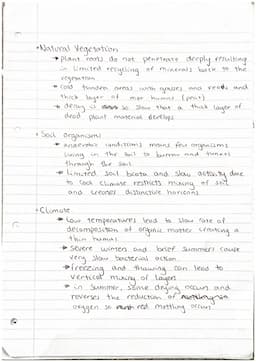 • Natural Vegetation
→ Plant roots do not penetrate deeply resulting
in limited recycling of minerals back to the
vegetation
→ Cold tundra areas with grasses and reeds and
thick layer of mor humus (peat)
→ decay is so slow that a thick layer of
dead plant material develops
• Soil Organisms
→ anaerobic conditions means few organisms
living in the soil to burrow and tunnel
through the soil
→ limited soil biota and slow activity due
to cool climate restricts mixing of soil
and creates distinctive horizons
• Climate
→ Low temperatures lead to slow rate of
decomposition of organic matter creating a
thin humus
→ severe winters and brief summers cause
very slow bacterial action
→ freezing and thawing can lead to
vertical mixing of layers
→ in summer, some drying occurs and
reverses the reduction of
oxygen so red mottling occurs